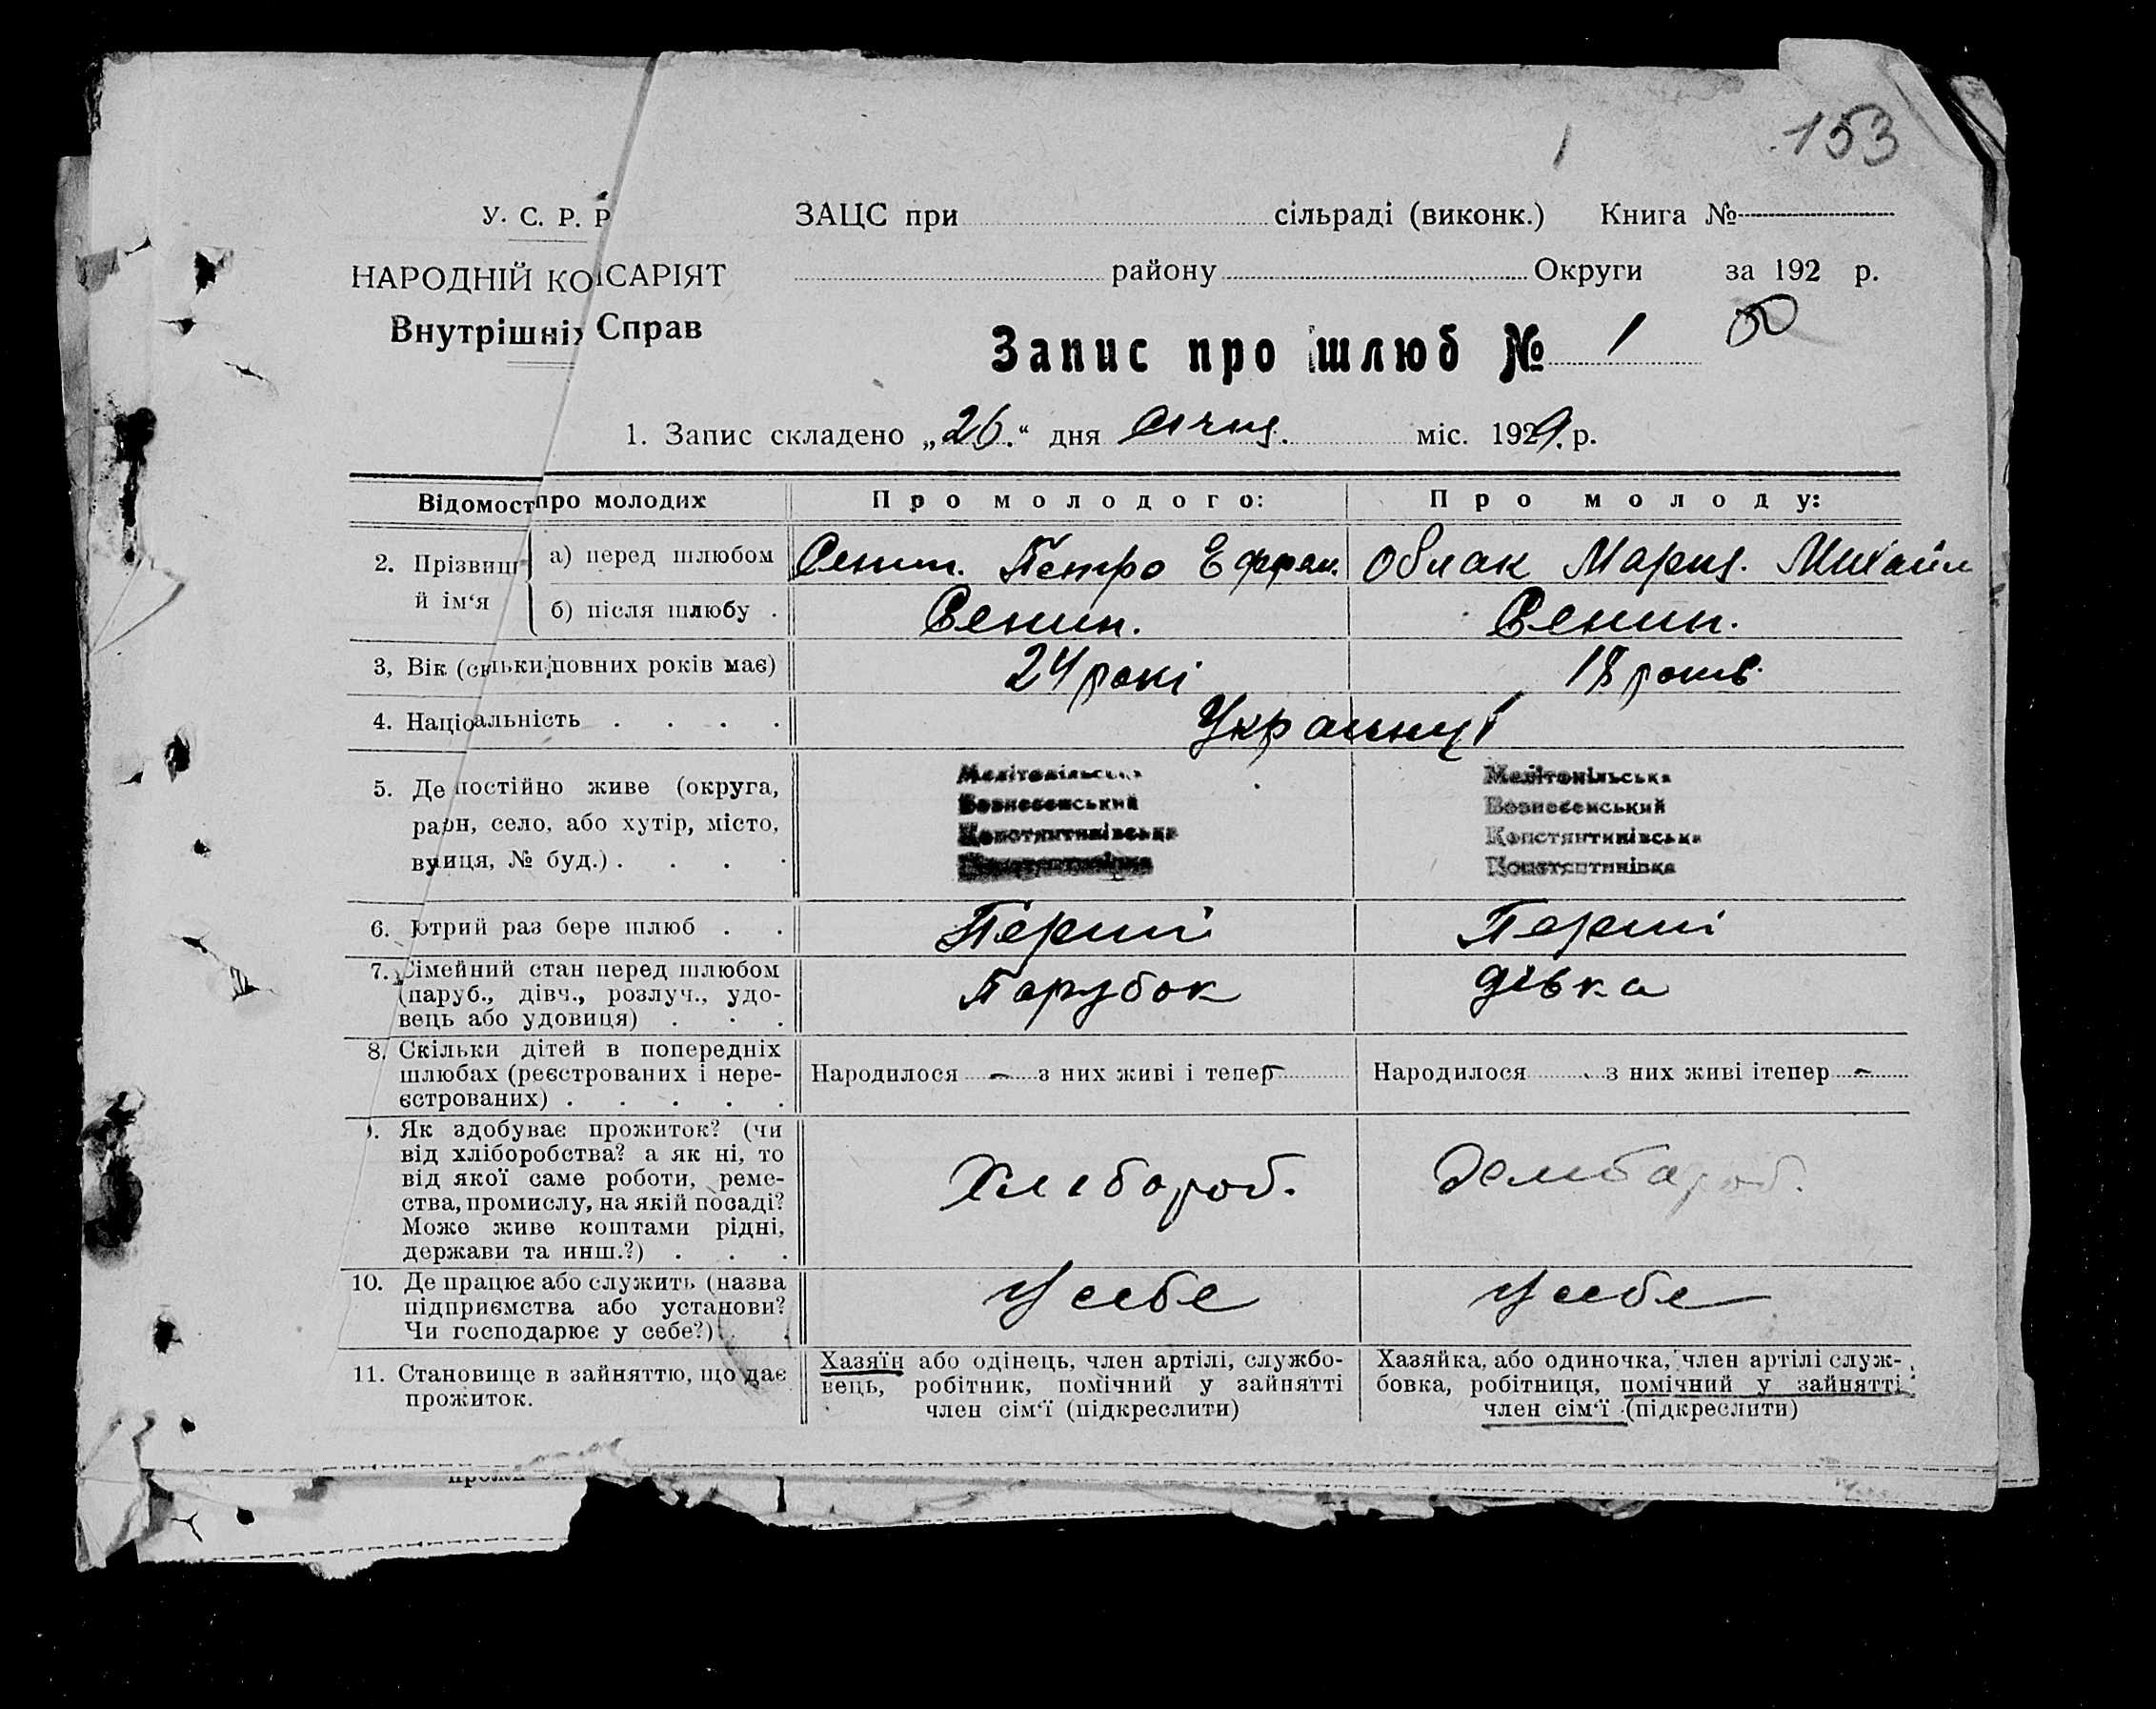 153
1
У. С. Р. Р
ЗАЦС при сільраді (виконк.) Книга №
НАРОДНІЙ КО ІСАРІЯТ
району Округи за 192 р.
Внутрішніх Справ
Запис про шлюб № 1
1. Запис складено „26.“ дня січня. міс. 1929. р.
Відомост про молодих Про молодого: Про молоду:
2. Прізвищ й ім‘я
а) перед шлюбом Сенин. Петро Облак Мария. Михайл
б) після шлюбу . Сенин. Сенин.
3, Вік (скільки повних років має) 24 рокі 18 років.
4. Націо альність . . . . Украинці
5. Де постійно живе (округа, Мелітопільська Мелітопільська
район, село, або хутір, місто, Вознесенський Вознесенський
вулиця, № буд.) . . . . Константинівська Константинівська
Константинівка Константинівка
6. Ютрий раз бере шлюб . . Перший Перші
7. Сімейний стан перед шлюбом Парубок Дівка
(паруб., дівч., розлуч., удо-
вець або удовиця) . . .
8. Скільки дітей в попередніх
шлюбах (реєстрованих і нере- Народилося – з них живі і тепер Народилося з них живі ітепер –
єстрованих) . . . . .
9. Як здобуває прожиток? (чи
від хліборобства? а як ні, то
від якої саме роботи, реме- Хлібороб. Хлібороб.
ства, промислу, на якій посаді?
Може живе коштами рідні,
держави та инш.?) . . .
10. Де працює або служить (назва У себе У себе
підприємства або установи?
Чи господарює у себе?) . .
11. Становище в зайняттю, що дає прожиток.
Хазяїн або одінець, член артілі, службо-
вець, робітник, помічний у зайнятті
член сім‘ї (підкреслити)
Хазяйка, або одиночка, член артілі служ-
бовка, робітниця, помічний у зайнятті
член сім‘ї (підкреслити)